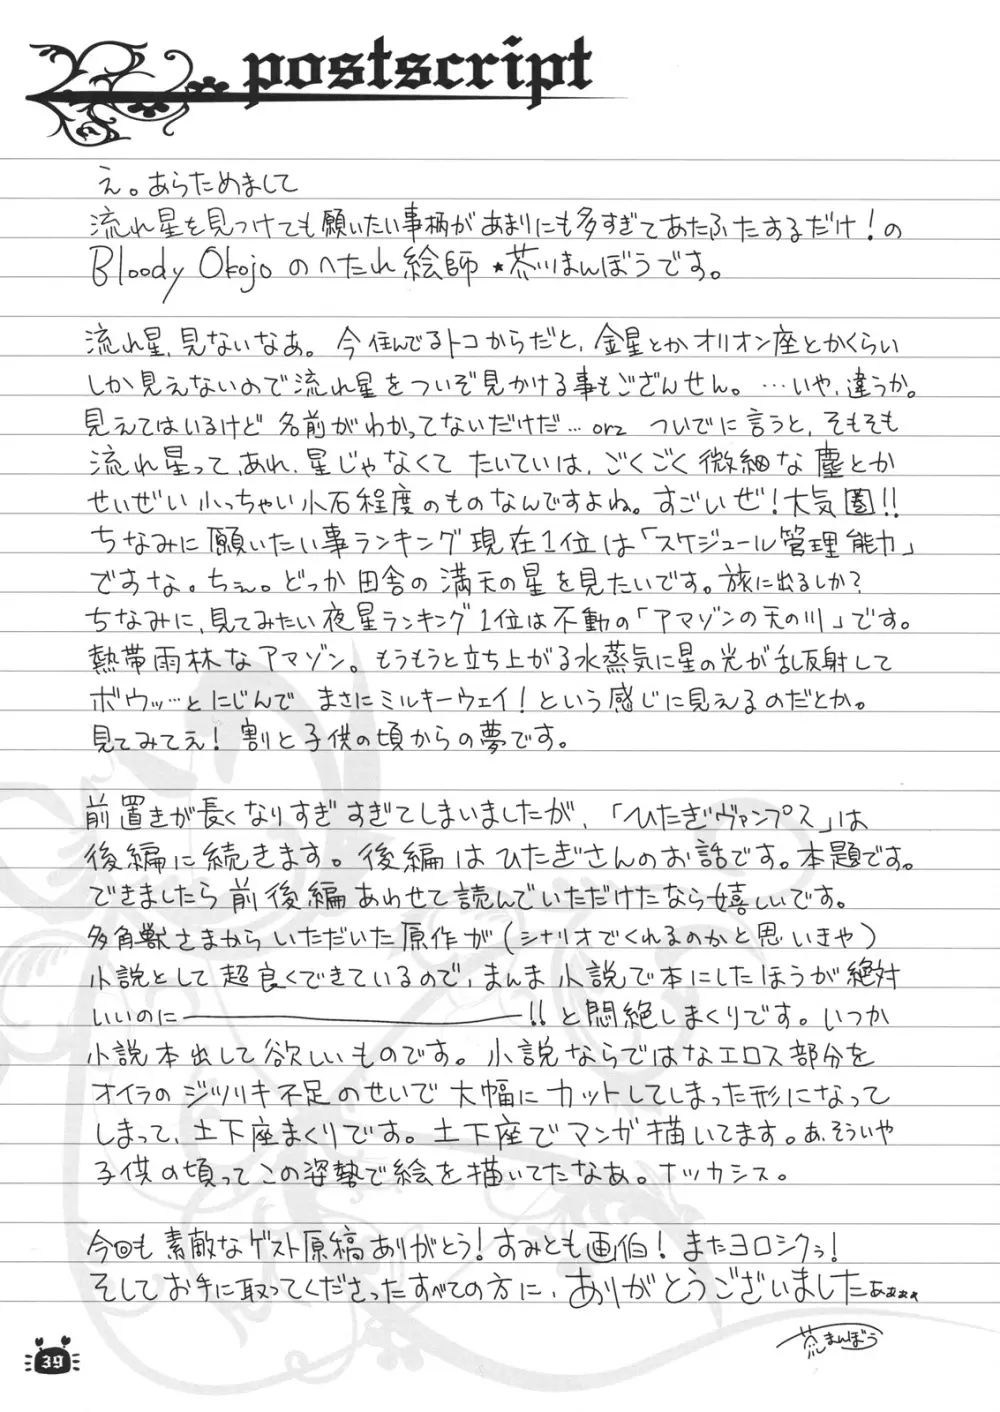 postscript
え。あらためまして
流れ星を見つけても願いたい事柄があまりにも多すぎてあたふたするだけ!の
Bloody Okojo のへたれ絵師★茶川まんぼうです。
流れ星、見ないなあ。今住んでるトコからだと、金星とかオリオン座とかくらい
しか見えないので流れ星をついぞ見かける事もござんせん。…いや、違うか。
見えてはいるけど名前がわかってないだけだ…orz ついでに言うと、そもそも
流れ星って、あれ、星じゃなくてたいていは、ごくごく微細な塵とか
せいぜい小っちゃい小石程度のものなんですよね。すごいぜ!大気圏!!
ちなみに願いたい事ランキング現在1位は「スケジュール管理能力」
ですな。ちぇ。どっか田舎の満天の星を見たいです。旅に出るしか?
ちなみに、見てみたい夜星ランキング1位は不動の「アマゾンの天の川」です。
熱帯雨林なアマゾン。もうもうと立ち上がる水蒸気に星の光が乱反射して
ボウッ…とにじんで まさにミルキーウェイ!という感じに見えるのだとか。
見てみてえ!割と子供の頃からの夢です。
前置きが長くなりすぎすぎてしまいましたが、「ひたぎヴァンプス」は
後編に続きます。後編はひたぎさんのお話です。本題です。
できましたら前後編あわせて読んでいただけたなら嬉しいです。
多角獣さまからいただいた原作が(シナリオでくれるのかと思いきや)
小説として超良くできているので、まんま小説で本にしたほうが絶対
いいのに――――――!!と悶絶しまくりです。いつか
小説本出して欲しいものです。小説ならではなエロス部分を
オイラのジツリキ不足のせいで大幅にカットしてしまった形になって
しまって、土下座まくりです。土下座でマンガ描いてます。あ、そういや
子供の頃ってこの姿勢で絵を描いてたなあ。ナツカシス。
今回も素敵なゲスト原稿ありがとう!すみとも画伯!またヨロシクぅ!
そしてお手に取ってくださったすべての方に、ありがとうございましたぁぁぁぁ
まんぼう
39